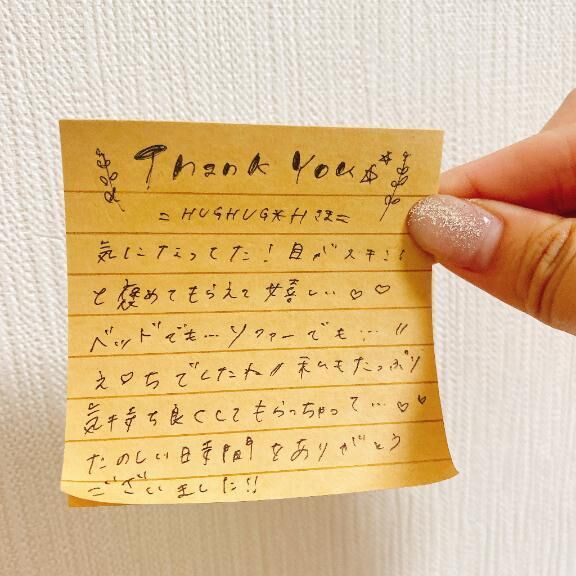 Thank You
= HUGHUG*Hさま=
気になってた!目がスキ!!
と褒めてもらえて嬉しい♡♡
ベッドでも…ソファーでも…!!
え♡ちでしたね!!私もたっぷり
気持ち良くしてもらっちゃって…♡♡
たのしい時間をありがとう
ございました!!